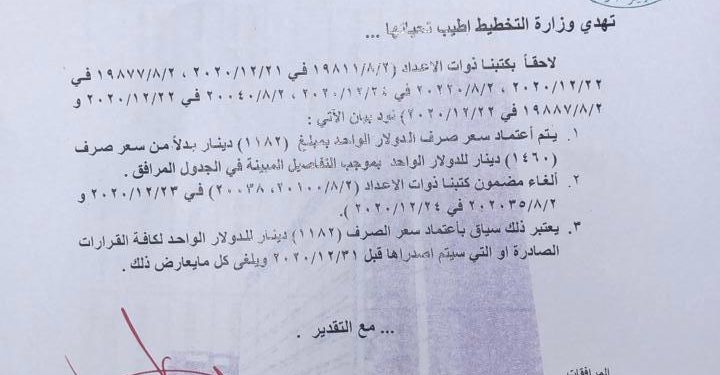 تهدي وزارة التخطيط اطيب تحياتها ...
لاحقاً بكتبنا ذوات الاعداد (١٩٨١١/٨/٢ في ٢٠٢٠/١٢/٢١ ، ١٩٨٧٧/٨/٢ في
٢٠٢٠/١٢/٢٢ ، ٢٠٢٢٠/٨/٢ في ٢٠٢٠/١٢/٢٤ ، ٢٠٠٤٠/٨/٢ في ٢٠٢٠/١٢/٢٢ و
١٩٨٨٧/٨/٢ في ٢٠٢٠/١٢/٢٢) نود بيان الآتي :
١. يتم أعتماد سعر صرف الدولار الواحد بمبلغ (١١٨٢) دينار بدلاً من سعر صرف
(١٤٦٠) دينار للدولار الواحد بموجب التفاصيل المبينة في الجدول المرافق .
٢. ألغاء مضمون كتبنا ذوات الاعداد (٢٠١٠٠/٨/٢، ٢٠٠٣٨) في ٢٠٢٠/١٢/٢٣ و
٢٠٢٠٣٥/٨/٢ في ٢٠٢٠/١٢/٢٤ ).
٣. يعتبر ذلك سياق بأعتماد سعر الصرف (١١٨٢) دينار للدولار الواحد لكافة القرارات
الصادرة او التي سيتم اصدراها قبل ٢٠٢٠/١٢/٣١ ويلغى كل مايعارض ذلك .
... مع التقدير .
المرافقات